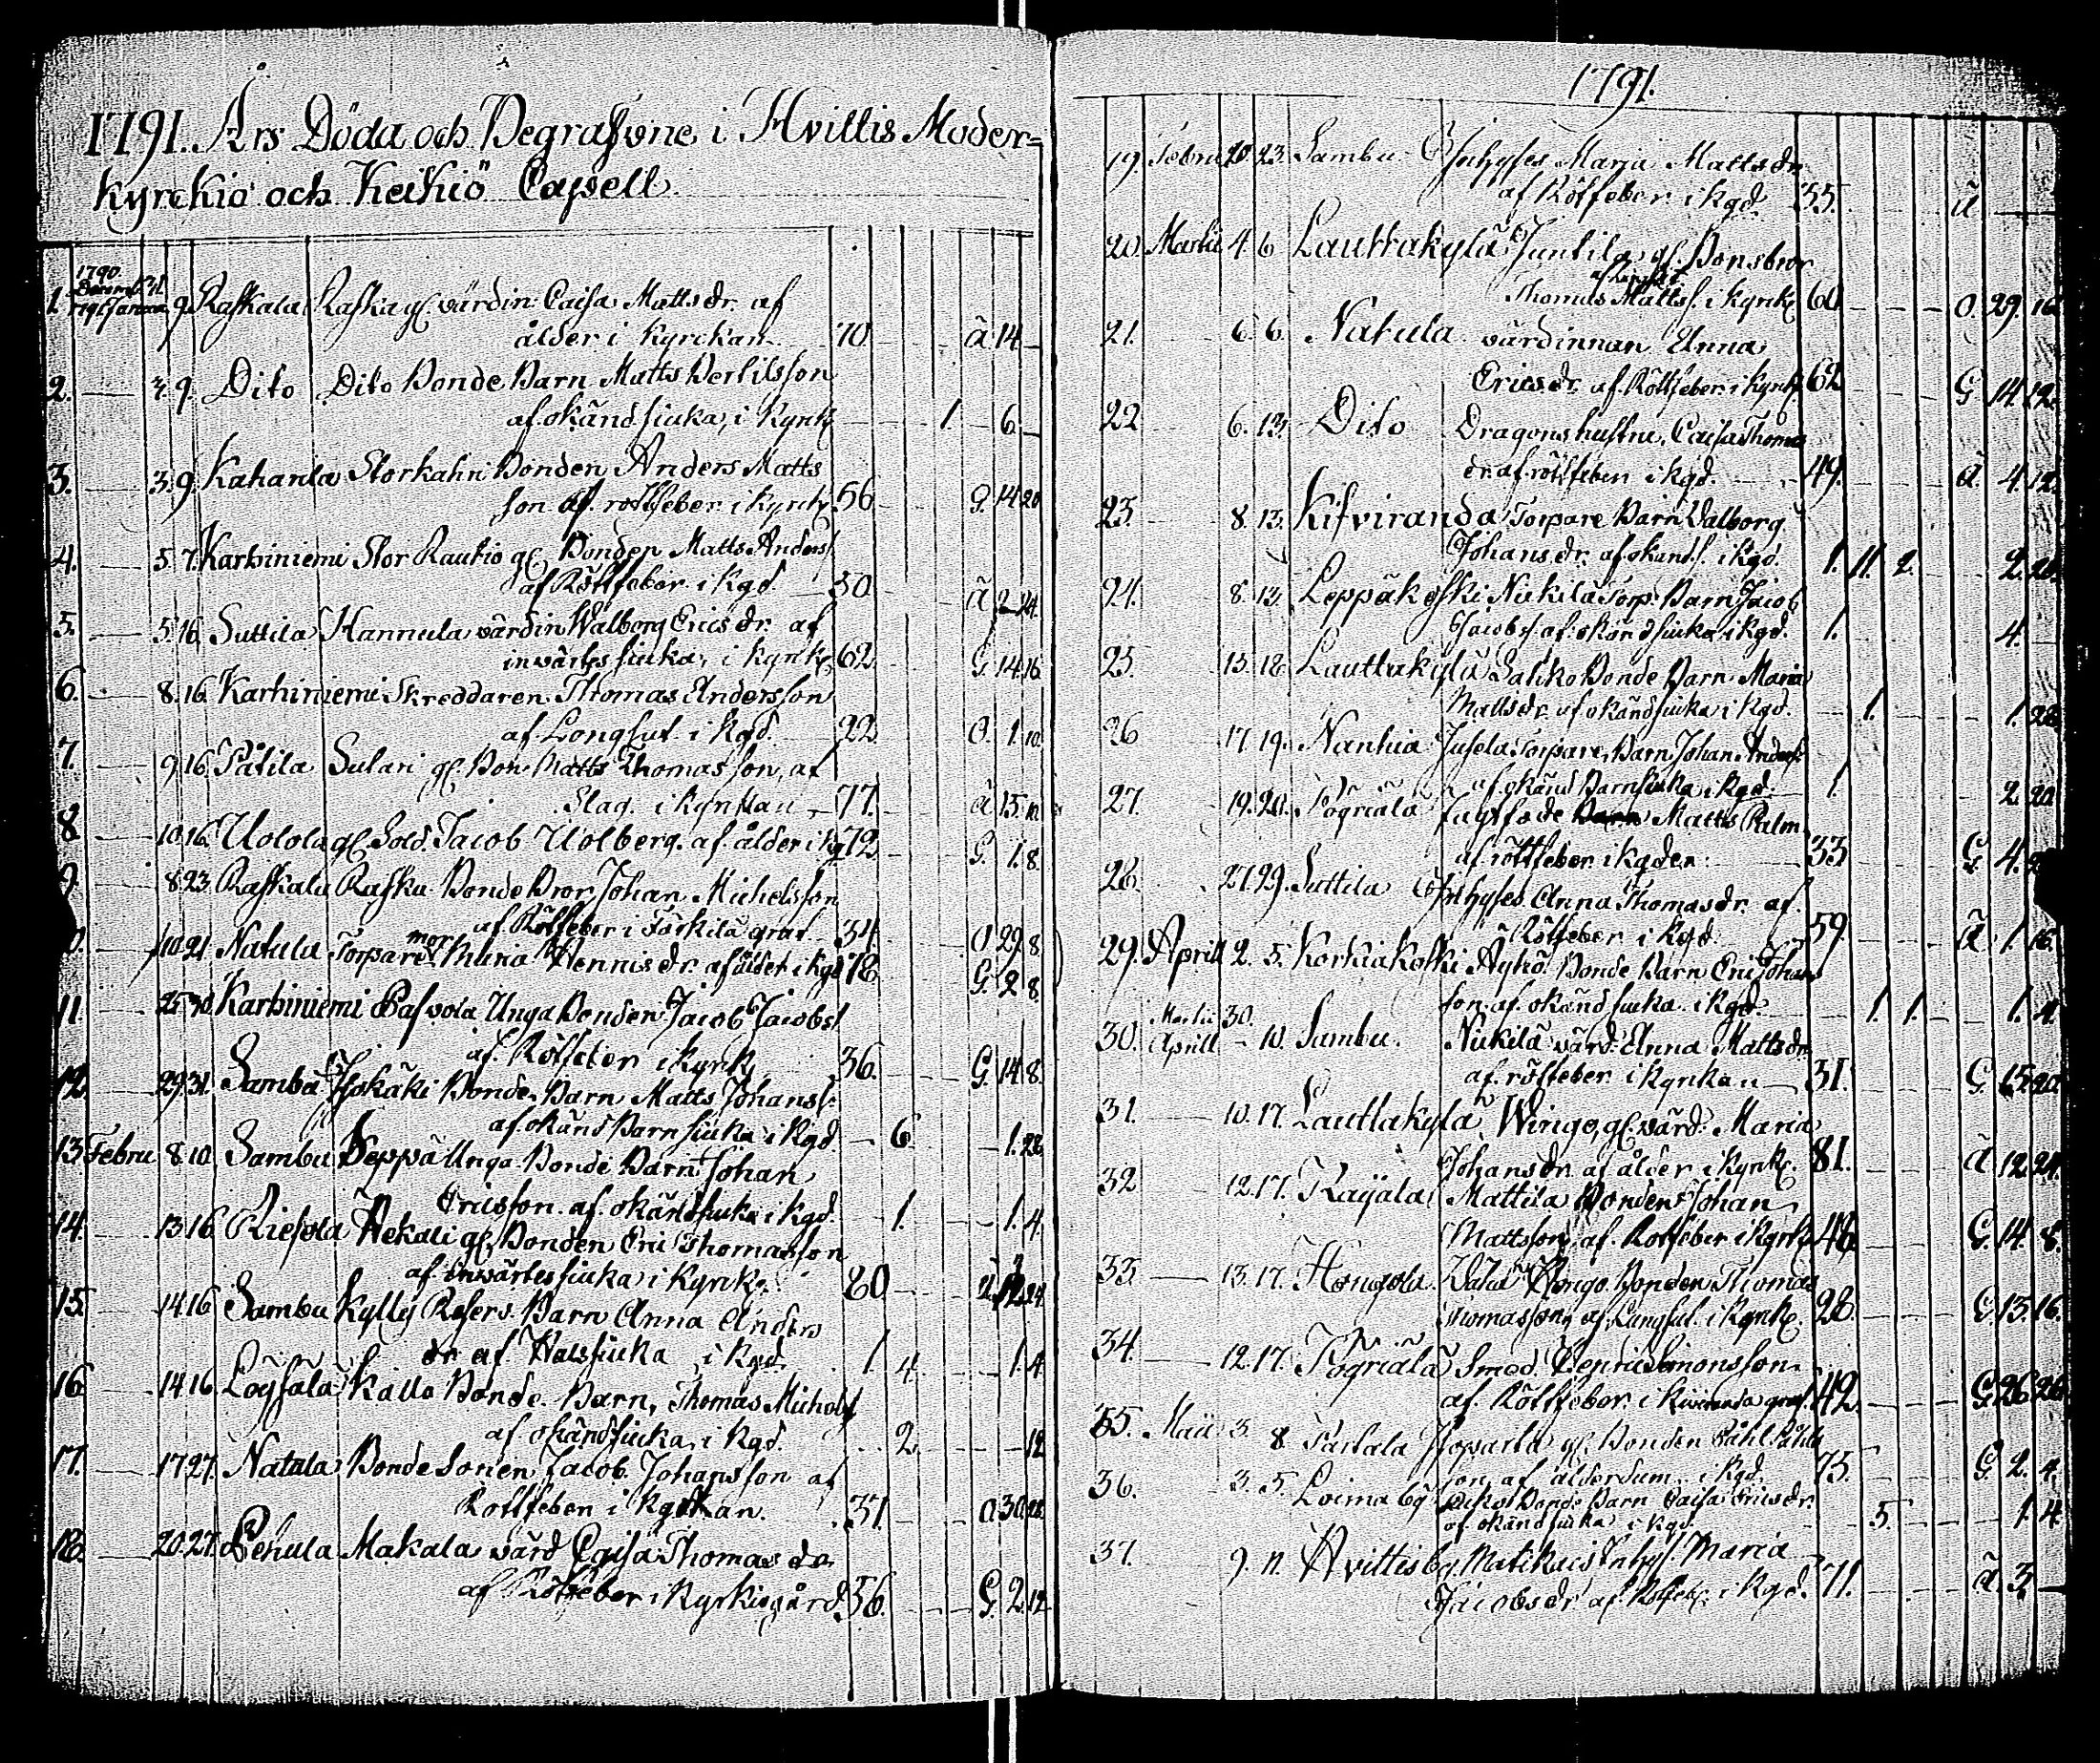 1791. Års Döda och Begrafvne i Hvittis Moder=
kyrckio och Keikiö Capell.
1790
Decemb. 31.
1. 1791 Januar. 9. Raskala Raska gl. värdin: Caisa Mattsdr. af
ålder i Kyrckan 70. ä 14. —
2. 3. 9. Dito Dito Bonde Barn Matts Bertilsson
af okänd siuka, i Kyrk. 1. 6. —
3. 3. 9. Kahanla Storkahri Bonden Anders Matts
son af rötfeber i kyrk. 56 G. 14 20
4. 5. 7. Karhiniemi Stor Raukio gl. Bonden Matts Anders
af Rötfeber i Kgd. 50. ä 2 24.
5. 5. 16. Suttila Hannula värdin Walborg Ericsdr. af
invärtes siuka, i kyrk. 62. G. 14 16.
6. 8. 16. Karhiniemi Skreddaren Thomas Andersson
af Longsut. i Kgd. 22. O. 1. 10.
7. 9 16. Sulari gl. Bon. Matts Thomasson, af
Slag. i kyrckan 77. ä 15.
8 10. 16. Uolola gl. Sold. Jacob Uolberg. af ålder i kg 72. G. 1. 8.
9. 8. 23. Raskala Raska Bonde Bror Johan Michelsson
af Rötfeber i graf. 34. O 29. 8.
10. 10. 21. Natula Torpare mor Henricsdr. af ålder i kgd 78. G. 2 8.
11. 25. 30. Karhiniemi Unga Bonden Jacob Jacobs.
af Rötfeber i kyrk. 36. G. 14. 8.
12. 29. 31. Sambu Bonde Barn Matts Johans.
af okänd Barnsiuka i Kgd. 6. 1. 28.
13. Febru 8. 10. Sambu Seppä Unga Bonde Barn Johan
Ericsson af okänd siuka i kgd. 1. 1. 4.
14. 13. 16 Riesola Hekali gl. Bonden Eric Thomasson
af invärtes siuka i Kyrk. 80 24.
15. 14. 16 Sambu Kylly Barn Anna Anders
dr. af Halssiuka i Kgd. 1. 4. 1. 4.
16. 14. 16 Löysälä Kallo Bonde Barn, Thomas Michels
af okänd siuka, i kgd. 2. 12
17. 17. 27. Natula Bonde Sonen Jacob Johansson af
Rottfeber i kgd. 37. O 30. 28.
18. 20. 27. Pehula Makala värd. Caisa Thomas dr.
af Rötfeber i Kyrkiogård. 56. G. 2. 12
1791.
19. Febru 20. 23. Sambu Inhyses Maria Mattsdr.
af Rötfeber i kgd. 55. ä —
20. Martii 4. 6 Lauttakylä Juntila gl. Bonsbror
Thomas Matts. i kyrk. 60 O. 29. 16
21. 6. 6. Natula värdinnan Anna
Ericsdr. af Rötfeber i kyrk. 62 G. 14. 12.
22 6. 13. Dito Dragonshustru, Caisa Thomas
dr. af rötfeber i kgd. 49. ä. 4. 12.
23. 8. 13. Kifviranda Torpare Barn Valborg
Johansdr. af okänd s. i kgd. 1. 11. 2. 2. 20.
24. 8. 13. Leppäkoski Nickilä Torp. Barn Jacob
Jacobs. af okänd siuka i kgd. 1. 4. —
25. 15. 18. Lauttakylä Bonde Barn Maria
Mattsdr. af okänd siuka i kgd. 1. 1. 28.
26 17. 19. Nanhia Jusela Torpare Barn Johan Anders
af okänd Barnsiuka i kgd. 1. 2. 20
27. 19. 20. Pögriälä Matts Palm
af rötfeber i kgden. 33 G. 4.
28. 27. 29. Suttila Inhyses Anna Thomasdr. af
Rötfeber i kgd. 59. ä 1. 16.
29. Aprill 2. 5. Korkiakoski Äyhö Bonde Barn Eric Johans
son af okänd siuka i kgd. 1. 1. 1. 4.
30. Martii 30.
Aprill — 10. Sambu. Nickilä värd. Anna Mattsdr
af rötfeber i kyrckan 31. G. 15. 20.
31. 10. 17. Lauttakylä Wirigo, gl. värd. Maria
Johansdr. af ålder i kyrk. 81. ä 12. 24.
32 12. 17. Raijala Mattila Bonden Johan
Mattsson af Rotfeber i kyrk. 46 G. 14. 8.
33. 13. 17. Bonden Thomas
Thomasson af Lungsut. i kyrk. 28. G. 13. 16.
34. 12. 17. Pögriälä Smed. Henric Simonsson
af Rötfeber i graf. 42. G. 26 26
35. Maii 3. 8. gl. Bonden Påhl Påhls
son, af ålderdom i Kgd. 75. G. 2. 4.
36. 3. 5. Loima by Bonde Barn Caisa Ericsdr.
af okänd siuka i kgd. 5. 1. 4.
37. 9. 11. Hvittisby. Matikais Inhys. Maria
Jacobsdr af Rotfeb. i Kgd. 71. ä. 3. —